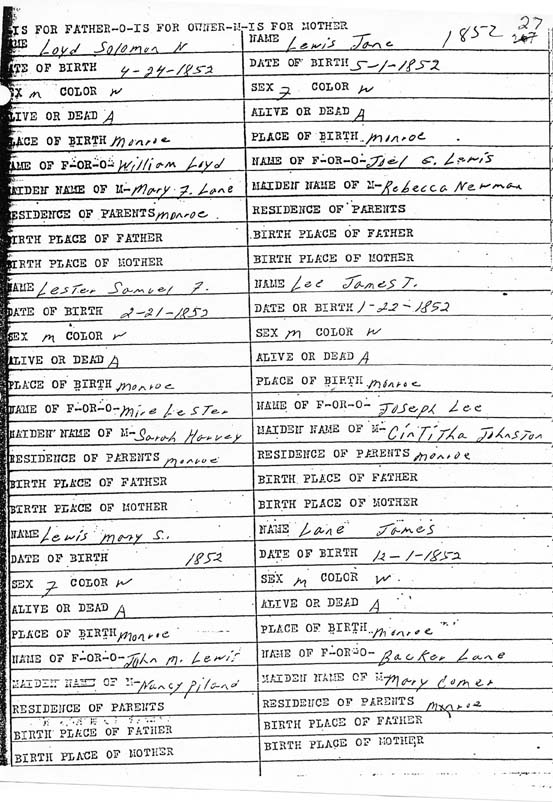 IS FOR FATHER-O-IS FOR OWNER-M-IS FOR MOTHER
1852 27
ME Loyd Solomon N
TE OF BIRTH 4-24-1852
X m COLOR w
LIVE OR DEAD A
LACE OF BIRTH Monroe
AME OF F-OR-O- William Loyd
AIDEN NAME OF M- Mary F. Lane
ESIDENCE OF PARENTS Monroe.
IRTH PLACE OF FATHER
IRTH PLACE OF MOTHER
NAME Lester Samuel F.
DATE OF BIRTH 2-21-1852
SEX m COLOR w
ALIVE OR DEAD A
PLACE OF BIRTH Monroe
NAME OF F-OR-O- Mire Lester
MAIDEN NAME OF M- Sarah Harvey
RESIDENCE OF PARENTS Monroe
BIRTH PLACE OF FATHER
BIRTH PLACE OF MOTHER
NAME Lewis Mary S.
DATE OF BIRTH 1852
SEX F COLOR w
ALIVE OR DEAD A
PLACE OF BIRTH Monroe
NAME OF F-OR-O- John M. Lewis
MAIDEN NAME OF M- Nancy Piland
RESIDENCE OF PARENTS
BIRTH PLACE OF FATHER
BIRTH PLACE OF MOTHER
NAME Lewis Jane
DATE OF BIRTH 5-1-1852
SEX F COLOR w
ALIVE OR DEAD A
PLACE OF BIRTH Monroe
NAME OF F-OR-O- Joel G. Lewis
MAIDEN NAME OF M- Rebecca Newman
RESIDENCE OF PARENTS
BIRTH PLACE OF FATHER
BIRTH PLACE OF MOTHER
NAME Lee James T.
DATE OR BIRTH 1-22-1852
SEX m COLOR w
ALIVE OR DEAD A
PLACE OF BIRTH Monroe
NAME OF F-OR-O- Joseph Lee
MAIDEN NAME OF M- CinTiTha Johnston
RESIDENCE OF PARENTS Monroe
BIRTH PLACE OF FATHER
BIRTH PLACE OF MOTHER
NAME Lane James
DATE OF BIRTH 12-1-1852
SEX m COLOR w.
ALIVE OR DEAD A
PLACE OF BIRTH Monroe
NAME OF F-OR-O- Backer Lane
MAIDEN NAME OF M- Mary Comer
RESIDENCE OF PARENTS Monroe
BIRTH PLACE OF FATHER
BIRTH PLACE OF MOTHER